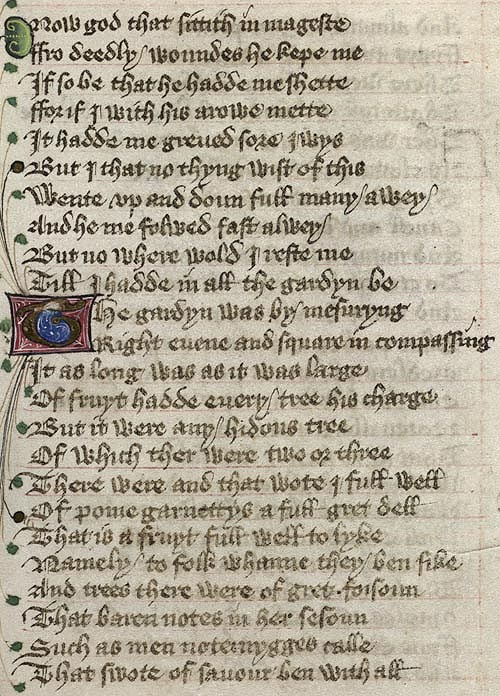 Now god that sittith in mageste
ffro deedly woundes he kepe me
If so be that he hadde me shette
ffor if I with his arowe mette
It hadde me greued sore Iwys
But I that no thyng wist of this
Wente vp and doun full many a wey
And he me folwed fast alwey
But no where wold I reste me
Till I hadde in all the gardyn be
The gardyn was by mesuryng
Right euene and square in compassing
It as long was as it was large
Of fruyt hadde euery tree his charge
But it were any hidous tree
Of which ther were two or three
There were and that wote I full well
Of pome garnettys a full gret dell
That is a fruyt full well to lyke
Namely to folk whanne they ben sike
And trees there were of gret foisoun
That baren notes in her sesoun
Such as men notemygges calle
That swote of sauour ben with all